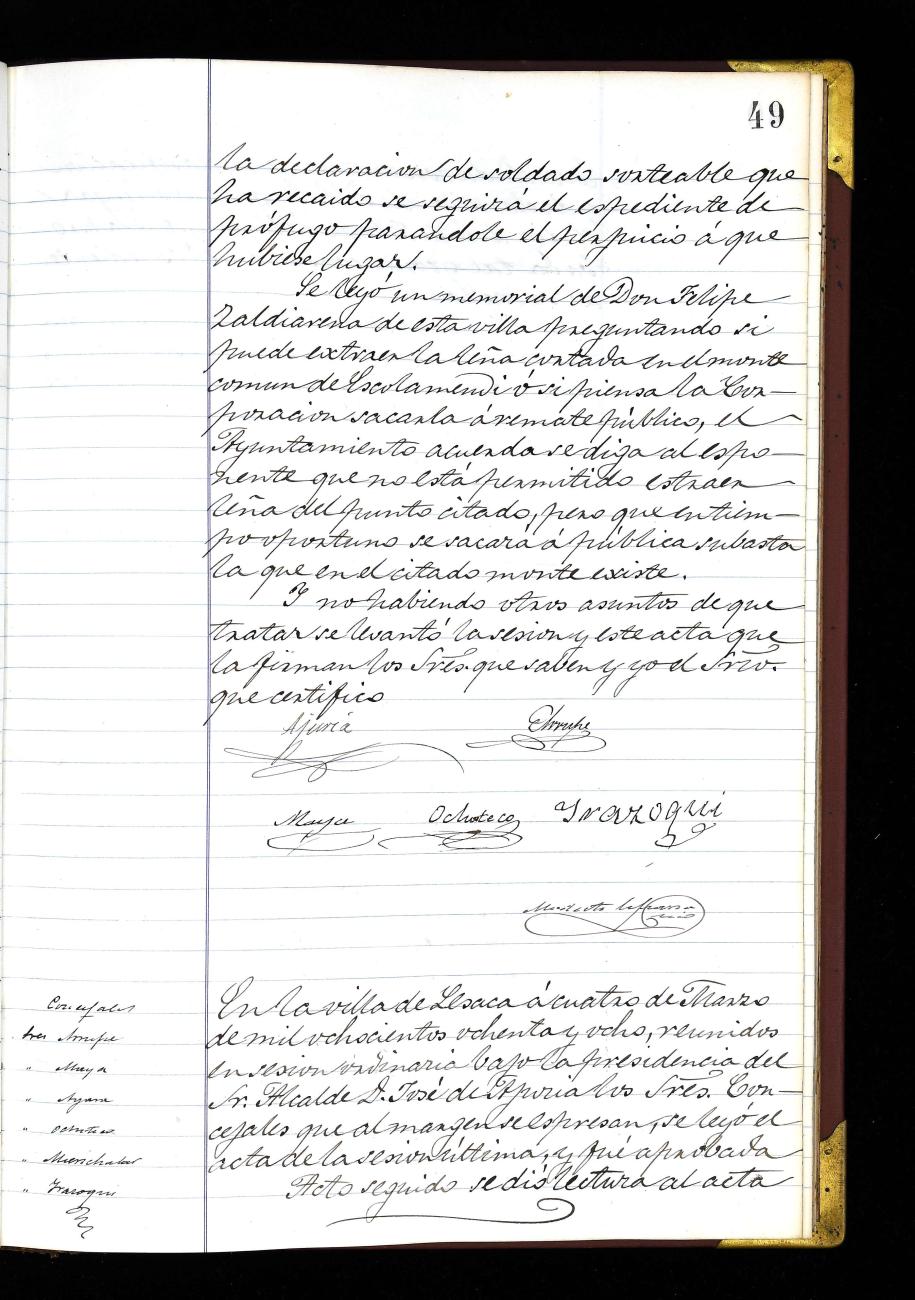 49
la declaracion de soldado sorteable que
ha recaido se seguirá el espediente de
prófugo parandole el perjuicio á que
hubiese lugar.
Se leyó un memorial de Don Felipe
Zaldiarena de esta villa preguntando si
puede extraer la leña cortada en el monte
comun de Escolamendi ó si piensa la Cor-
poracion sacarla á remate público, el
Ayuntamiento acuerda se diga al espo-
nente que no está permitido estraer
leña del punto citado, pero que en tiem-
po oportuno se sacará á pública subasta
la que en el citado monte existe.
Y no habiendo otros asuntos de que
tratar se levantó la sesion y este acta que
la firman los Sres. que saben y yo el Srio.
que certifico
Ajuria
Arrupe
Maya Ochoteco Yrazoqui
En la villa de Lesaca á cuatro de Marzo
de mil ochocientos ochenta y ocho, reunidos
en sesion ordinaria bajo la presidencia del
Sr. Alcalde D. José de Ajuria los Sres. Con-
cejales que al margen se espresan, se leyó el
acta de la sesion última, y fué aprobada
Acto seguido se dió lectura al acta
Concejales
Sres Arrupe
" Maya
" Ochoteco
" Marichalar
" Irazoqui